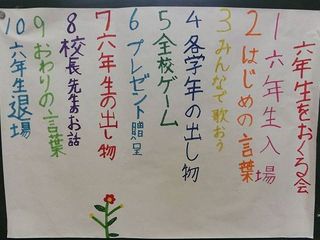 六年生をおくる会
1 六年生入場
2 はじめの言葉
3 みんなで歌おう
4 各学年の出し物
5 全校ゲーム
6 プレゼント贈呈
7 六年生の出し物
8 校長先生のお話
9 おわりの言葉
10 六年生退場